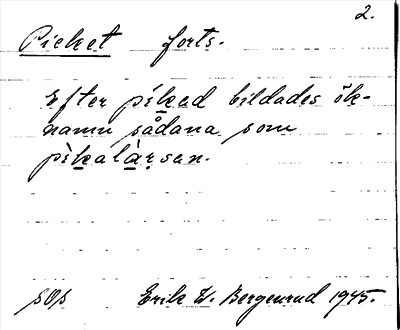 2.
Picket forts.
Efter píkad bildades ök-
namn sådana som
pìkalàrsan.
sOs Erik W. Bergenrud 1945.